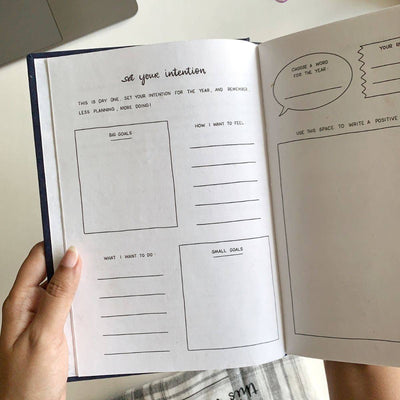 set your intention
THIS IS DAY ONE. SET YOUR INTENTION FOR THE YEAR, AND REMEMBER:
LESS PLANNING, MORE DOING!
BIG GOALS
HOW I WANT TO FEEL
WHAT I WANT TO DO
SMALL GOALS
CHOOSE A WORD
FOR THE YEAR:
YOUR
USE THIS SPACE TO WRITE A POSITIVE
this